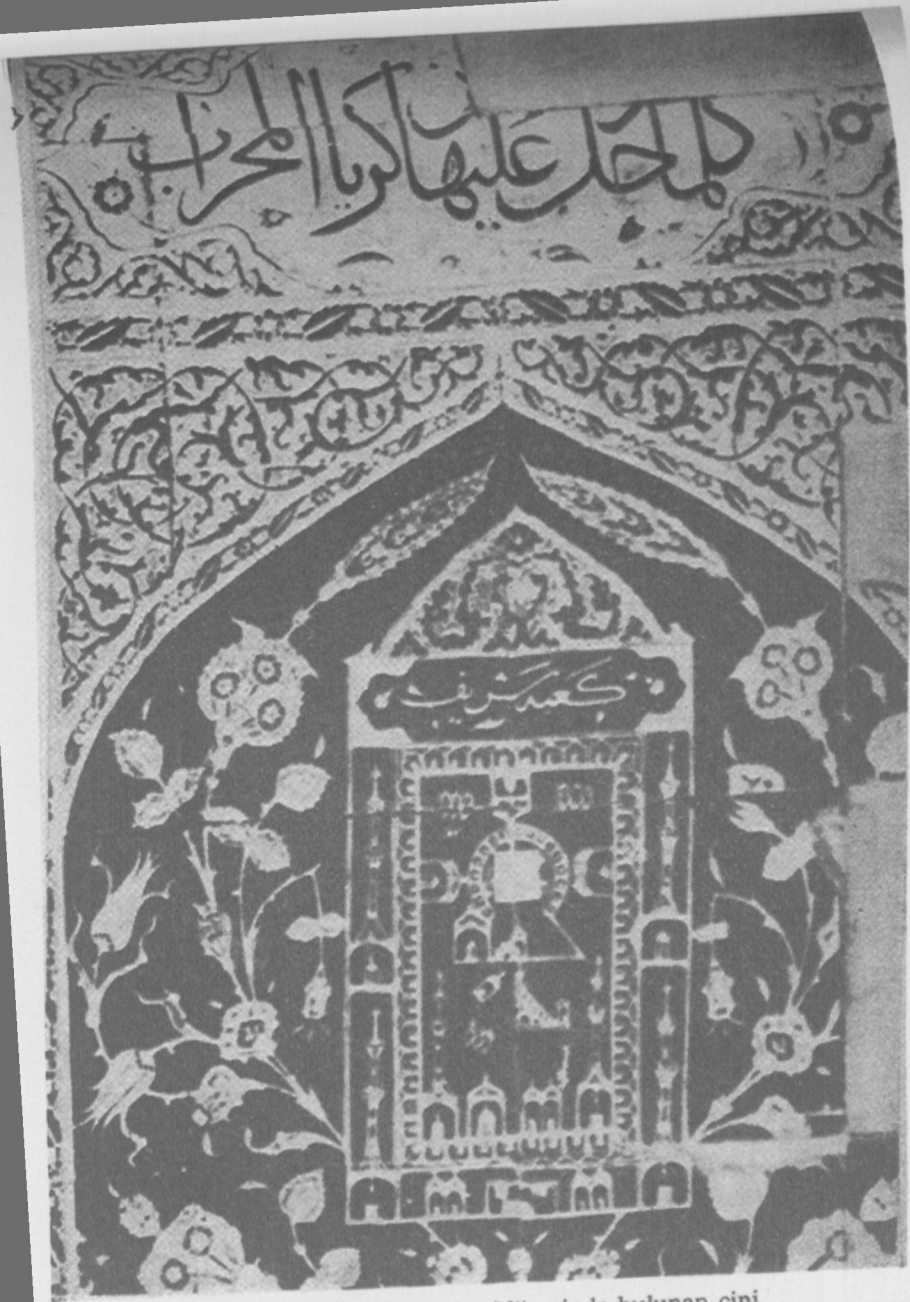 كلما دخل عليها زكريا المحراب
كعبه شريف
bulunan çini